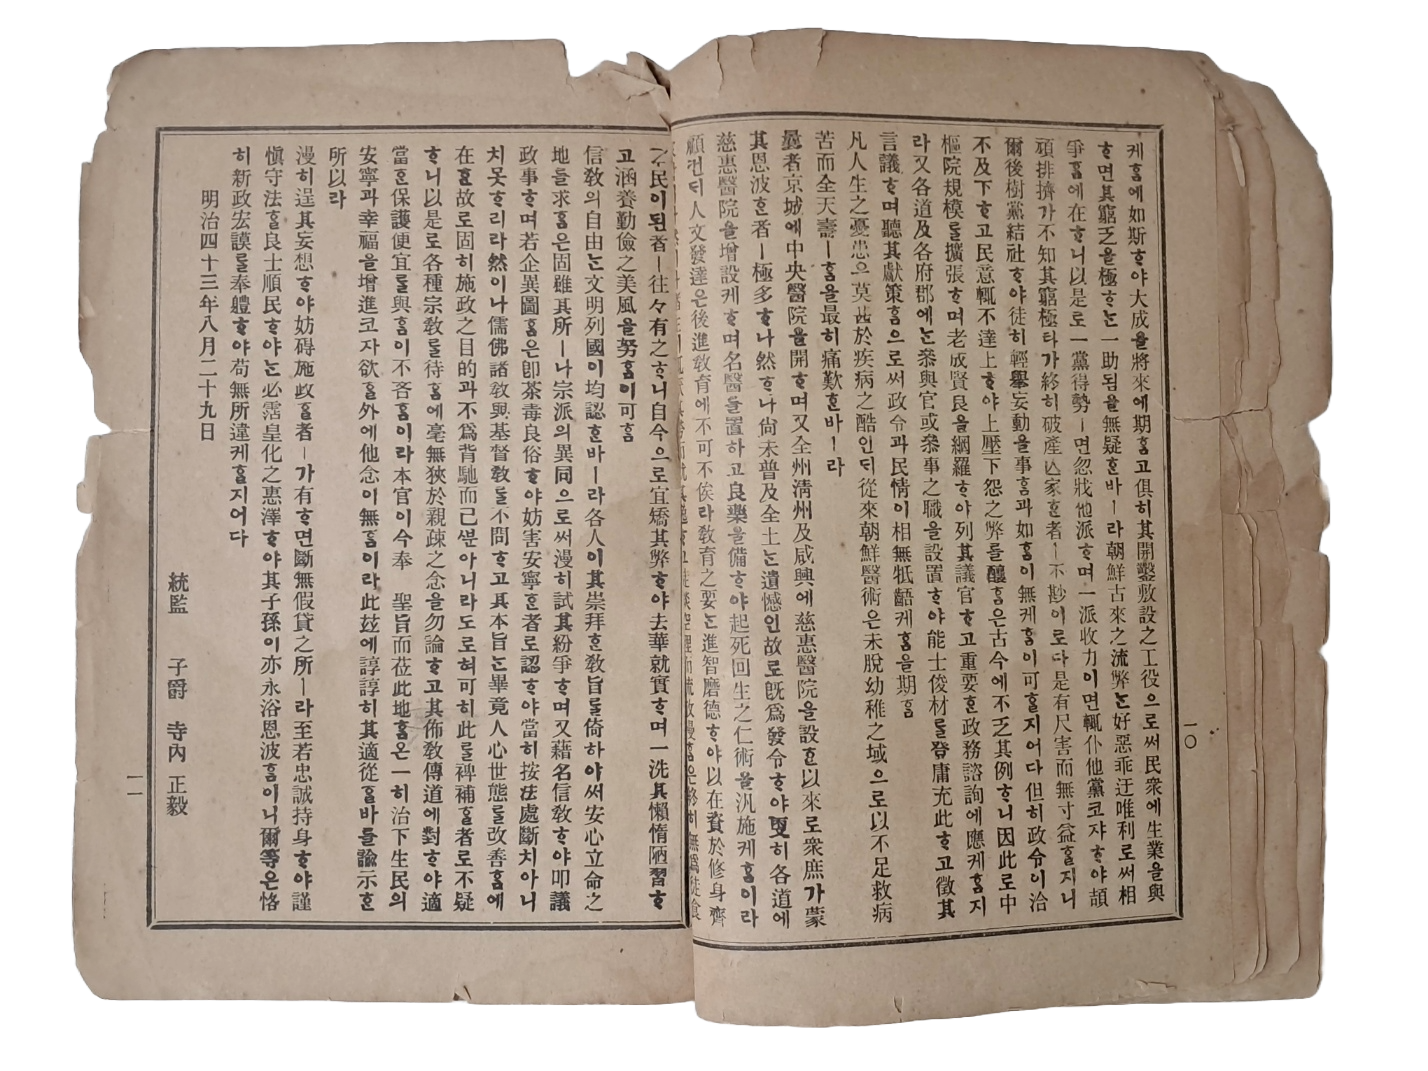 케ᄒᆞᆷ에如斯ᄒᆞ야大成을將來에期ᄒᆞᆷ고俱히其開鑿敷設之工役으로써民衆에生業을與
ᄒᆞ면其窮乏을極ᄒᆞᄂᆞᆫ一助됨을無疑ᄒᆞᆫ바ㅣ라朝鮮古來之流弊ᄂᆞᆫ好惡乖迕唯利로써相
爭ᄒᆞᆷ에在ᄒᆞ니以是로一黨得勢ㅣ면忽戕他派ᄒᆞ며一派收力이면輒仆他黨코쟈ᄒᆞ야頡
頑排擠가不知其窮極타가終히破產亾家ᄒᆞᆫ者ㅣ不尠이로다是有尺害而無寸益ᄒᆞᆯ지니
爾後樹黨結社ᄒᆞ야徒히輕擧妄動을事ᄒᆞᆷ과如ᄒᆞᆷ이無케ᄒᆞᆷ이可ᄒᆞᆯ지어다但히政令이洽
不及下ᄒᆞ고民意輒不達上ᄒᆞ야上壓下怨之弊를釀ᄒᆞᆷ은古今에不乏其例ᄒᆞ니因此로中
樞院規模를擴張ᄒᆞ며老成賢良을網羅ᄒᆞ야列其議官ᄒᆞ고重要ᄒᆞᆫ政務諮詢에應케ᄒᆞᆷ지
라又各道及各府郡에ᄂᆞᆫ叅與官或叅事之職을設置ᄒᆞ야能士俊材를登庸充此ᄒᆞ고徵其
言議ᄒᆞ며聽其獻策ᄒᆞᆷ으로써政令과民情이相無牴齬케ᄒᆞᆷ을期ᄒᆞᆷ
凡人生之憂患으莫甚於疾病之酷인ᄃᆡ從來朝鮮醫術은未脫幼稚之域으로以不足救病
苦而全天壽ㅣᄒᆞᆷ을最히痛歎ᄒᆞᆫ바ㅣ라
曩者京城에中央醫院을開ᄒᆞ며又全州淸州及咸興에慈惠醫院을設ᄒᆞᆫ以來로衆庶가蒙
其恩波ᄒᆞᆫ者ㅣ極多ᄒᆞ나然ᄒᆞ나尙未普及全土ᄂᆞᆫ遺憾인故로旣爲發令ᄒᆞ야更히各道에
慈惠醫院을增設케ᄒᆞ며名醫를置하고良藥을備ᄒᆞ야起死回生之仁術을汎施케ᄒᆞᆷ이라
顧컨ᄃᆡ人文發達은後進敎育에不可不俟라敎育之要ᄂᆞᆫ進智磨德ᄒᆞ야以在資於修身齊
一〇
民이된者ㅣ往々有之ᄒᆞ니自今으로宜矯其弊ᄒᆞ야去華就實ᄒᆞ며一洗其懶惰陋習ᄒᆞ
고涵養勤儉之美風을努ᄒᆞᆷ이可ᄒᆞᆷ
信敎의自由ᄂᆞᆫ文明列國이均認ᄒᆞᆫ바ㅣ라各人이其崇拜ᄒᆞᆫ敎旨를倚하야써安心立命之
地를求ᄒᆞᆷ은固雖其所ㅣ나宗派의異同으로써漫히試其紛爭ᄒᆞ며又藉名信敎ᄒᆞ야叩議
政事ᄒᆞ며若企異圖ᄒᆞᆷ은卽茶毒良俗ᄒᆞ야妨害安寧ᄒᆞᆫ者로認ᄒᆞ야當히按法處斷치아니
치못ᄒᆞ리라然이나儒佛諸敎與基督敎를不問ᄒᆞ고其本旨ᄂᆞᆫ畢竟人心世態를改善ᄒᆞᆷ에
在ᄒᆞᆫ故로固히施政之目的과不爲背馳而已ᄲᅮᆫ아니라도로혀可히此를裨補ᄒᆞᆯ者로不疑
ᄒᆞ니以是로各種宗敎를待ᄒᆞᆷ에毫無狹於親疎之念을勿論ᄒᆞ고其佈敎傳道에對ᄒᆞ야適
當ᄒᆞᆫ保護便宜를與ᄒᆞᆷ이不吝ᄒᆞᆷ이라本官이今奉　聖旨而莅此地ᄒᆞᆷ은一히治下生民의
安寧과幸福을增進코자欲ᄒᆞᆯ外에他念이無ᄒᆞᆷ이라此玆에諄諄히其適從ᄒᆞᆯ바를諭示ᄒᆞᆫ
所以라
漫히逞其妄想ᄒᆞ야妨碍施政ᄒᆞᆯ者ㅣ가有ᄒᆞ면斷無假貸之所ㅣ라至若忠誠持身ᄒᆞ야謹
愼守法ᄒᆞᆯ良士順民ᄒᆞ야ᄂᆞᆫ必霑皇化之惠澤ᄒᆞ야其子孫이亦永浴恩波ᄒᆞᆷ이니爾等은恪
히新政宏謨를奉軆ᄒᆞ야苟無所違케ᄒᆞᆯ지어다
明治四十三年八月二十九日
統監　子爵　寺內　正毅
一一